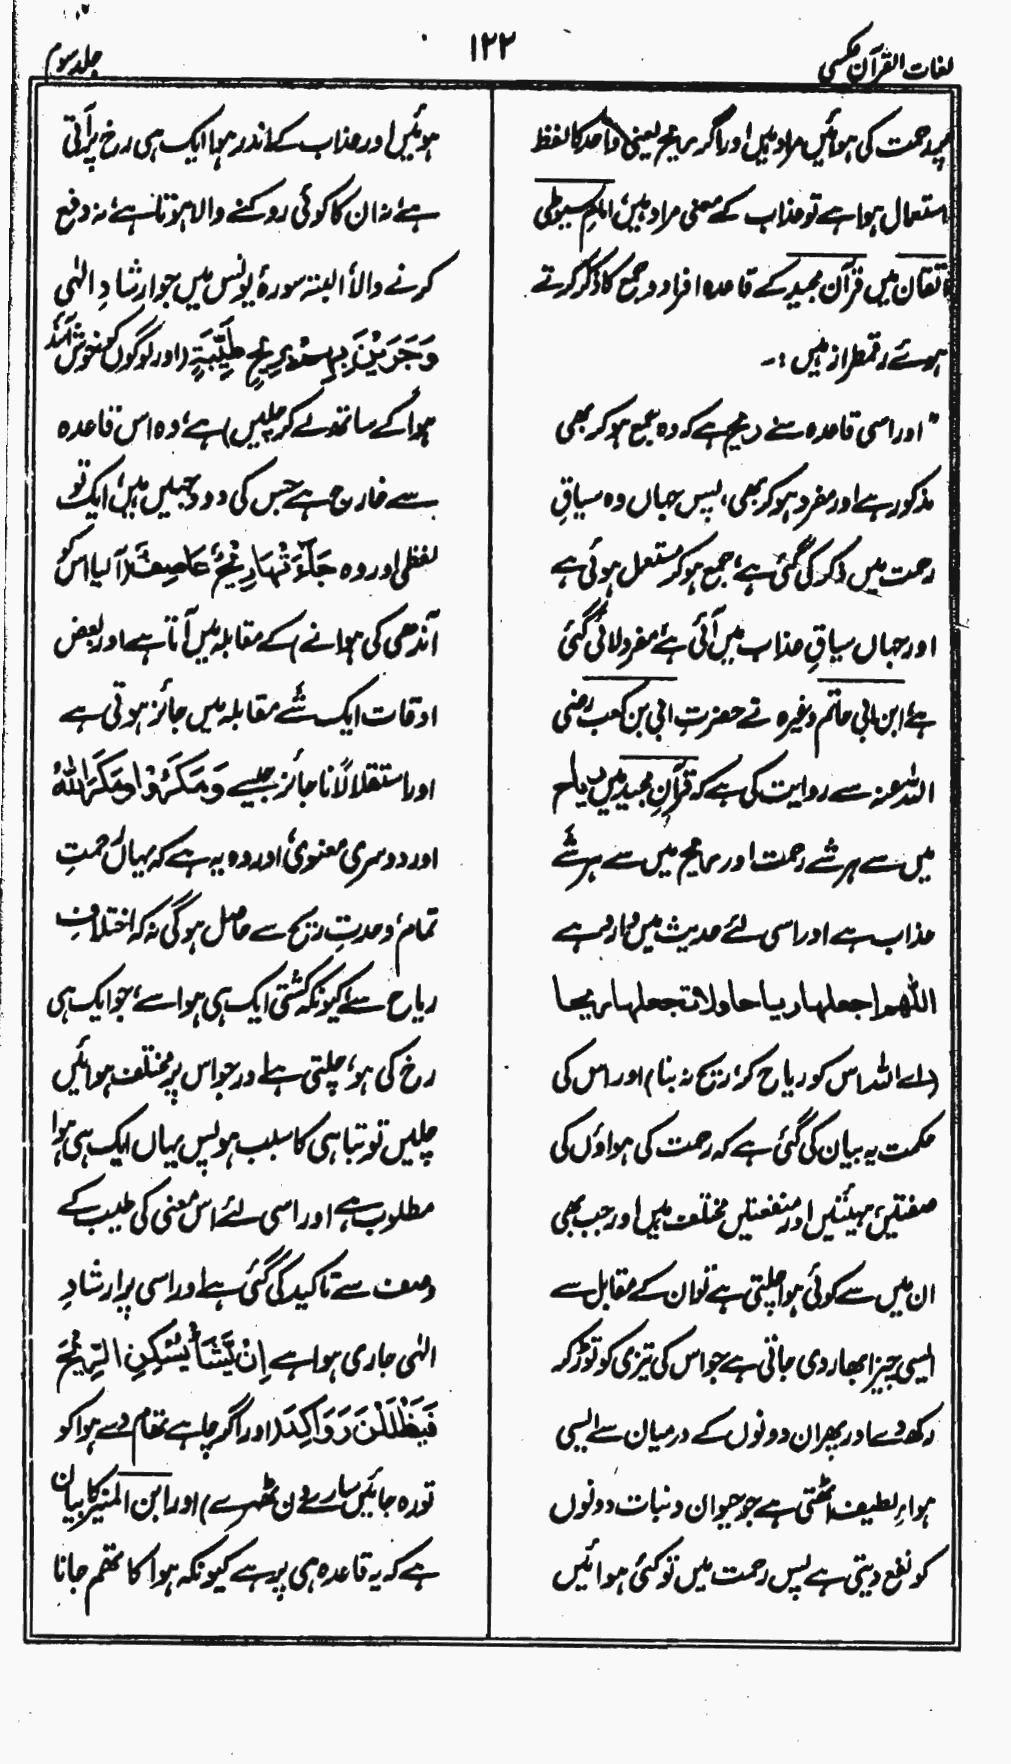 لغات القرآن عکسی
۱۲۲
جلد سوم
رحمت کی ہوائیں مراد ہیں اور اگر ریح یعنی واحد کا لفظ
استعمال ہوا ہے تو عذاب کے معنی مراد ہیں، امام سیوطی
اتقان میں قرآن مجید کے قاعدہ افراد و جمع کا ذکر کرتے
ہوئے رقمطراز ہیں :۔
" اور اسی قاعدہ سے ریح ہے کہ وہ جمع ہو کر بھی
مذکور ہے اور مفرد ہو کر بھی، پس جہاں وہ سیاقِ
رحمت میں ذکر کی گئی ہے، جمع ہو کر مستعمل ہوئی ہے
اور جہاں سیاقِ عذاب میں آئی ہے، مفرد لائی گئی
ہے، ابن ابی حاتم وغیرہ نے حضرت ابی بن کعب رضی
اللہ عنہ سے روایت کی ہے کہ قرآنِ مجید میں ریاح
میں سے ہر شے رحمت اور ریح میں سے ہر شے
عذاب ہے اور اسی لئے حدیث میں وارد ہے
اللھم اجعلھا ریاحا ولا تجعلھا ریحا
(اے اللہ اس کو ریاح کر، ریح نہ بنا) اور اس کی
حکمت یہ بیان کی گئی ہے کہ رحمت کی ہواؤں کی
صفتیں، ہیئتیں اور منفعتیں مختلف ہیں اور جب بھی
ان میں سے کوئی ہوا چلتی ہے تو ان کے مقابل سے
ایسی چیز ابھار دی جاتی ہے جو اس کی تیزی کو توڑ کر
رکھ دے اور پھر ان دونوں کے درمیان سے ایسی
ہواءِ لطیف اٹھتی ہے جو حیوان و نبات دونوں
کو نفع دیتی ہے پس رحمت میں تو کئی ہوائیں
ہوئیں اور عذاب کے اندر ہوا ایک ہی رخ پر آتی
ہے، نہ ان کا کوئی روکنے والا ہوتا ہے، نہ دفع
کرنے والا، البتہ سورۂ یونس میں جو ارشادِ الٰہی
وَجَرَیْنَ بِہِمْ بِرِیْحٍ طَیِّبَۃٍ (اور لوگوں کو خوش آئند
ہوا کے ساتھ لے کر چلیں) ہے، وہ اس قاعدہ
سے خارج ہے جس کی دو وجہیں ہیں، ایک تو
لفظی اور وہ جَآءَتْہَا رِیْحٌ عَاصِفٌ (آ لیا اس کو
آندھی کی ہوا نے) کے مقابلہ میں آنا ہے اور بعض
اوقات ایک شے مقابلہ میں جائز ہوتی ہے
اور استقلالاً ناجائز جیسے وَمَکَرُوْا وَمَکَرَ اللّٰہُ
اور دوسری معنوی اور وہ یہ ہے کہ یہاں رحمتِ
تمام، وحدتِ ریح سے حاصل ہو گی نہ کہ اختلافِ
ریاح سے، کیونکہ کشتی ایک ہی ہوا سے، جو ایک ہی
رخ کی ہو، چلتی ہے اور جو اس پر مختلف ہوائیں
چلیں تو تباہی کا سبب ہو پس یہاں ایک ہی ہوا
مطلوب ہے اور اسی لئے اس معنی کی طیب کے
وصف سے تاکید کی گئی ہے اور اسی پر ارشادِ
الٰہی جاری ہوا ہے اِنْ یَّشَأْ یُسْکِنِ الرِّیْحَ
فَیَظْلَلْنَ رَوَاکِدَ (اور اگر چاہے تھام دے ہوا کو
تو رہ جائیں سارے دن ٹھہرے) اور ابن المنیر کا بیان
ہے کہ یہ قاعدہ ہی پر ہے کیونکہ ہوا کا تھم جانا